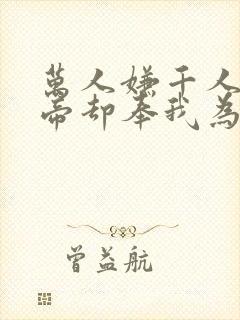 萬人嫌千人
帝却奉我為
曾益航